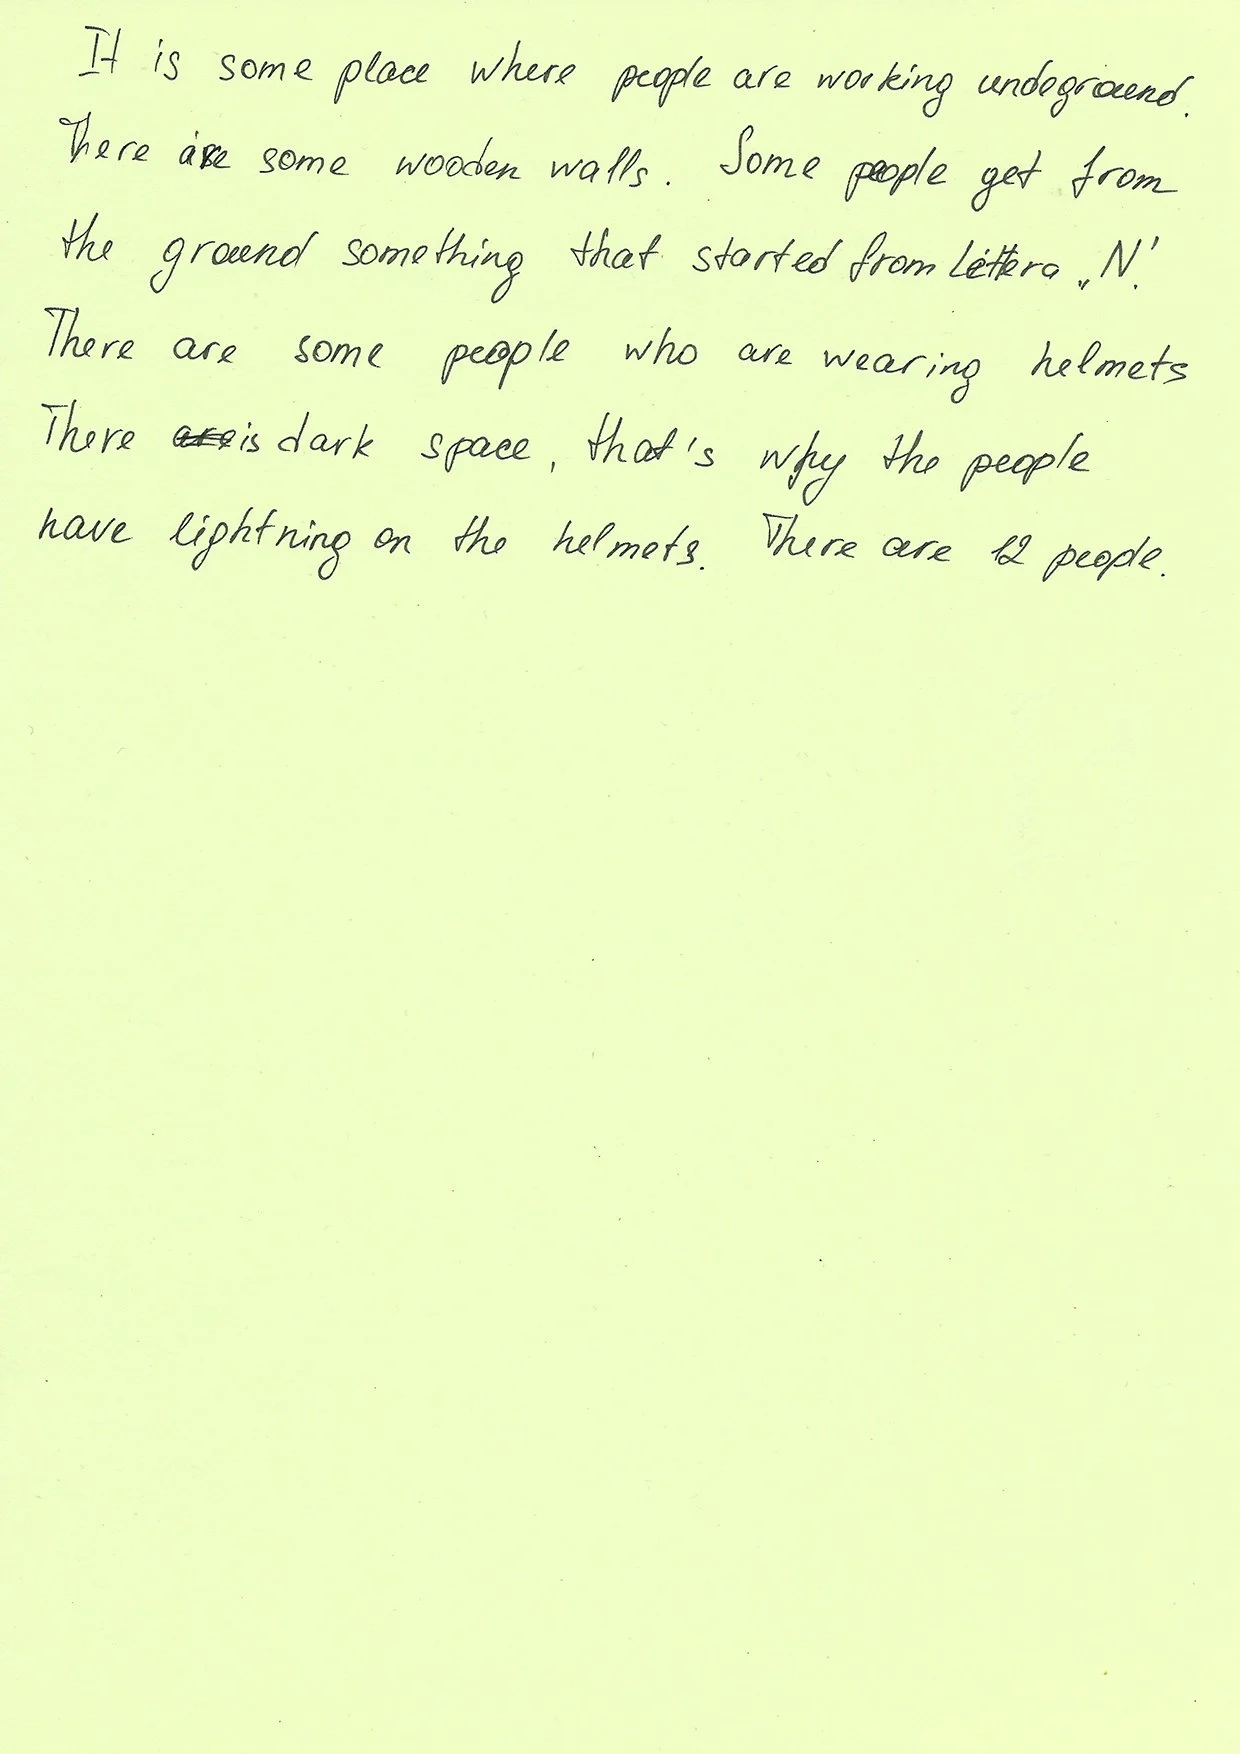 It is some place where people are working undeground.
There are some wooden walls. Some people get from
the ground something that started from Littera „N".
There are some people who are wearing helmets
There is dark space, that's why the people
have lightning on the helmets. There are 12 people.